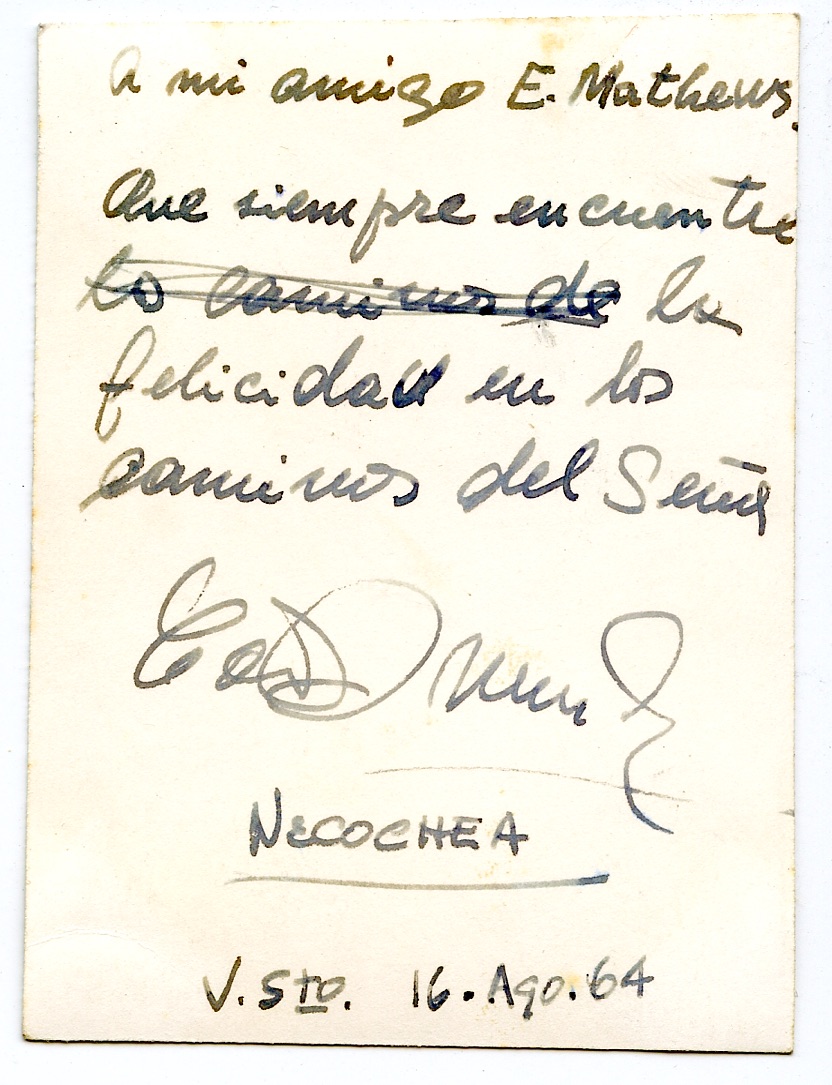 A mi amigo E. Mathews.
Que siempre encuentre
los caminos de la
felicidad en los
caminos del Señor
NECOCHEA
V. Sto. 16. Ago. 64